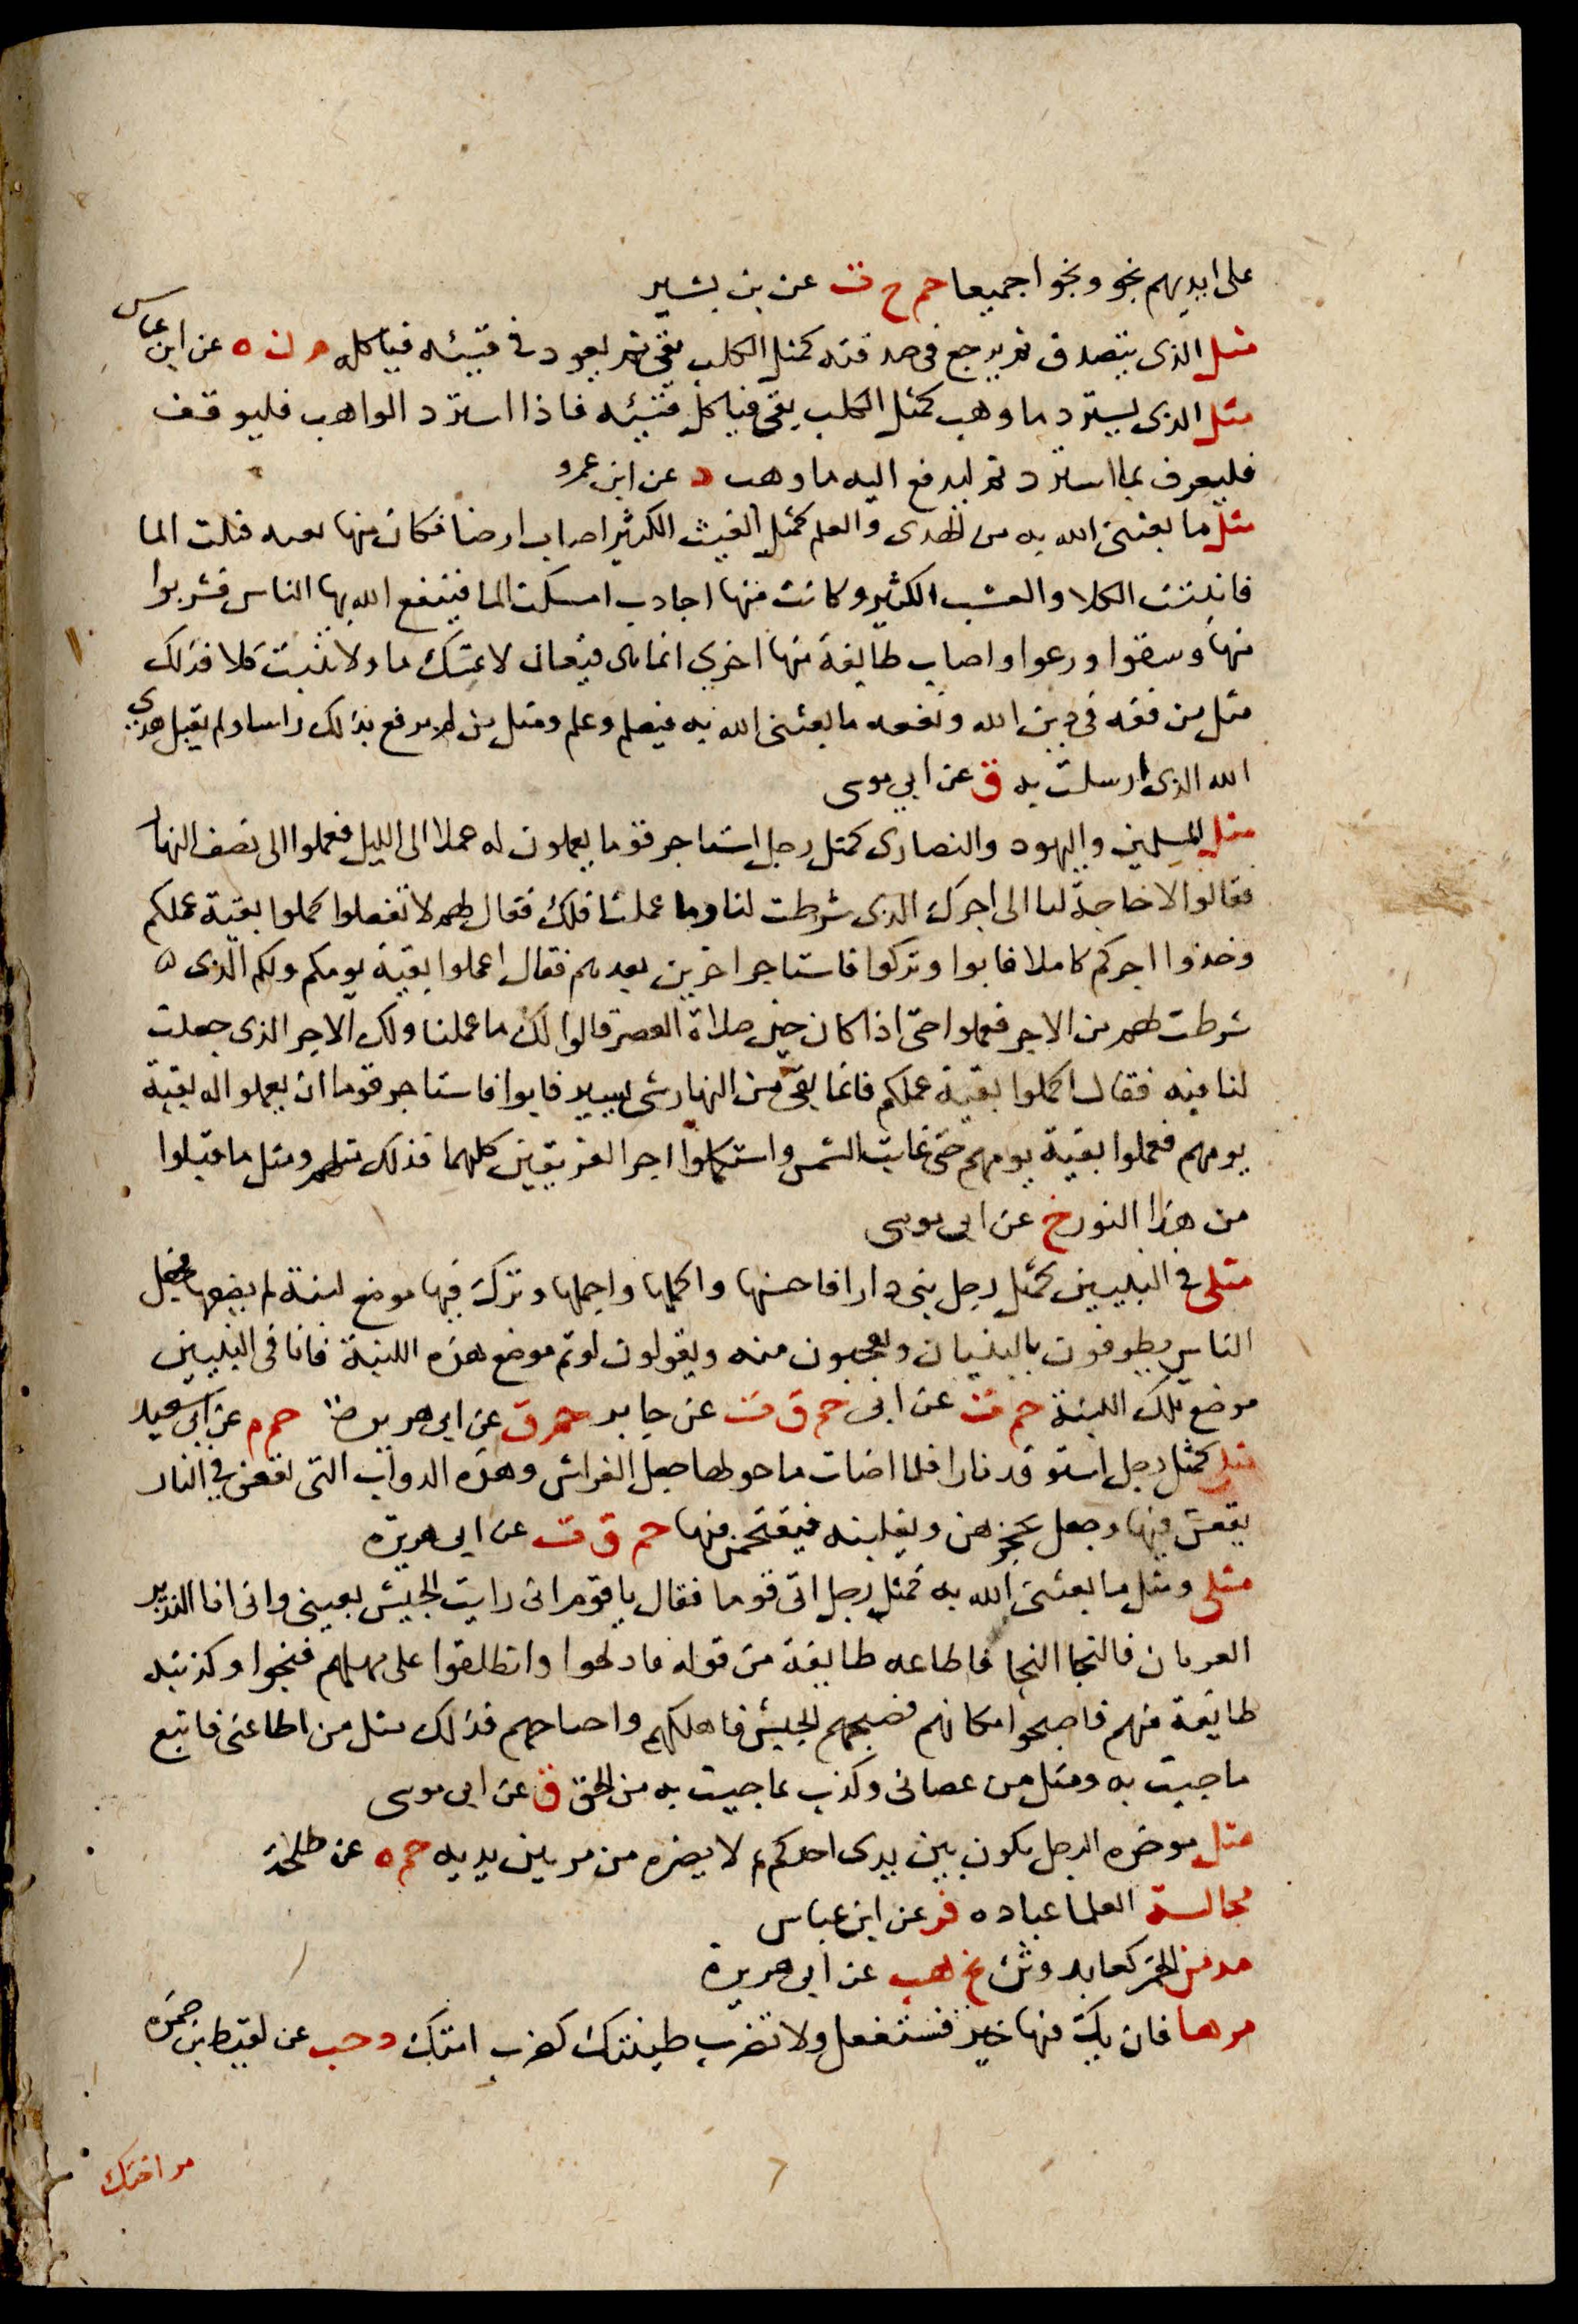 على ايديهم نجو ونجوا جميعا حم خ ت عن بن بشير
مثل الذى يتصدق ثم يرجع فى صدقته كمثل الكلب يقئ ثم يعود فى قيئه فياكله م ن ه عن ابن عباس
مثل الذى يسترد ما وهب كمثل الكلب يقئ فياكل قيئه فاذا استرد الواهب فليوقف
فليعرف بما استرد ثم ليدفع اليه ما وهب د عن ابن عمرو
مثل ما بعثنى الله به من الهدى والعلم كمثل الغيث الكثير اصاب ارضا فكان منها نقيه قبلت الما
فانبتت الكلا والعشب الكثير وكانت منها اجادب امسكت الما فينفع الله بها الناس فشربوا
منها وسقوا ورعوا واصاب طايفة منها اخرى انما هى قيعان لا تمسك ما ولا تنبت كلا فذلك
مثل من فقه فى دين الله ونفعه ما بعثنى الله به فيعلم وعلم ومثل من لم يرفع بذلك راسا ولم يقبل هدى
الله الذى ارسلت به ق عن ابى موسى
مثل المسلمين واليهود والنصارى كمثل رجل استاجر قوما يعملون له عملا الى الليل فعملوا الى نصف النهار
فقالوا لا حاجة لنا الى اجرك الذى شرطت لنا وما عملنا فلك فقال لهم لا تفعلوا كملوا بقية عملكم
وخذوا اجركم كاملا فابوا وتركوا فاستاجر اخرين بعدهم فقال اعملوا بقية يومكم ولكم الذى
شرطت لهم من الاجر فعملوا حتى اذا كان حين صلاة العصر قالوا لك ما عملنا ولك الاجر الذى جعلت
لنا فيه فقال اكملوا بقية عملكم فانما بقى من النهار شى يسير فابوا فاستاجر قوما ان يعملوا له بقية
يومهم فعملوا بقية يومهم حتى غابت الشمس واستكملوا اجر الفريقين كليهما فذلك مثلهم ومثل ما قبلوا
من هذا النور خ عن ابى موسى
مثلى فى النبيين كمثل رجل بنى دارا فاحسنها واكملها واجملها وترك فيها موضع لبنة لم يضعها فجعل
الناس يطوفون بالبنيان ويعجبون منه ويقولون لو تم موضع هذه اللبنة فانا فى النبيين
موضع تلك اللبنة حم ت عن ابى حم ق ت عن جابر حم ق عن ابى هريرة حم م عن ابى سعيد
مثلى كمثل رجل استوقد نارا فلما اضات ما حولها جعل الفراش وهذه الدواب التى تقعن فى النار
يقعن فيها وجعل يحجزهن ويغلبنه فيقتحمن فيها حم ق ت عن ابى هريره
مثلى ومثل ما بعثنى الله به كمثل رجل اتى قوما فقال يا قوم انى رايت الجيش بعينى وانى انا النذير
العريان فالنجا النجا فاطاعه طايفة من قوله فادلجوا وانطلقوا على مهلهم فنجوا وكذبته
طايفة منهم فاصبحوا مكانهم فصبحهم الجيش فاهلكهم واجتاحهم فذلك مثل من اطاعنى فاتبع
ما جيت به ومثل من عصانى وكذب بما جيت به من الحق ق عن ابى موسى
مثل موخره الرحل يكون بين يدى احدكم لا يضره من مر بين يديه حم ه عن طلحة
مجالسة العلما عباده فر عن ابن عباس
مدمن الخمر كعابد وثن تخ هب عن ابى هريرة
مرها فان يك فيها خير فستفعل ولا تضرب ظعينتك كضرب امتك د حب عن لقيط بن صبره
مر اختك